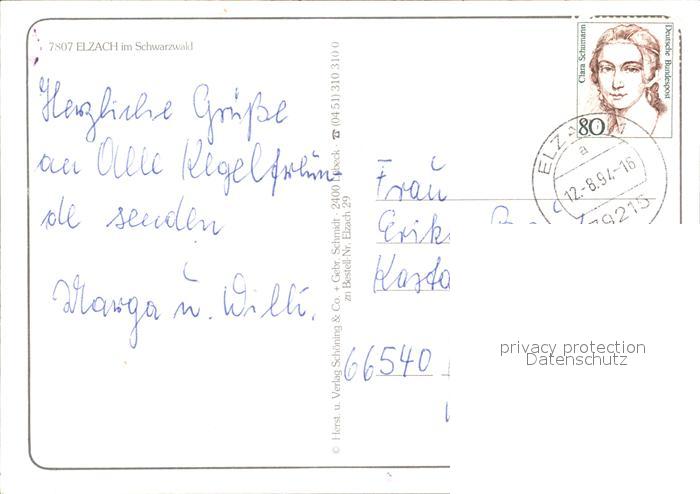 7807 ELZACH im Schwarzwald
Herzliche Grüße
an Alle Kegelfreun-
de senden
Marga u. Willi.
© Herst. u. Verlag Schöning & Co. + Gebr. Schmidt · 2400 Lübeck ☎ (04 51) 310 310 0
zu Bestell-Nr. Elzach 29
Clara Schumann
Deutsche Bundespost
80
ELZACH 1
a
12.-8.94-16
79215
Frau
Erik
Kasta
66540
privacy protection
Datenschutz